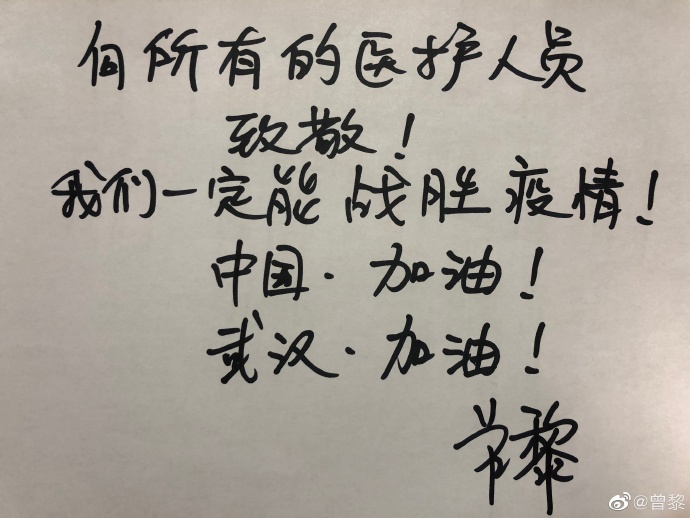 向所有的医护人员
致敬！
我们一定能战胜疫情！
中国·加油！
武汉·加油！
曾黎
@曾黎